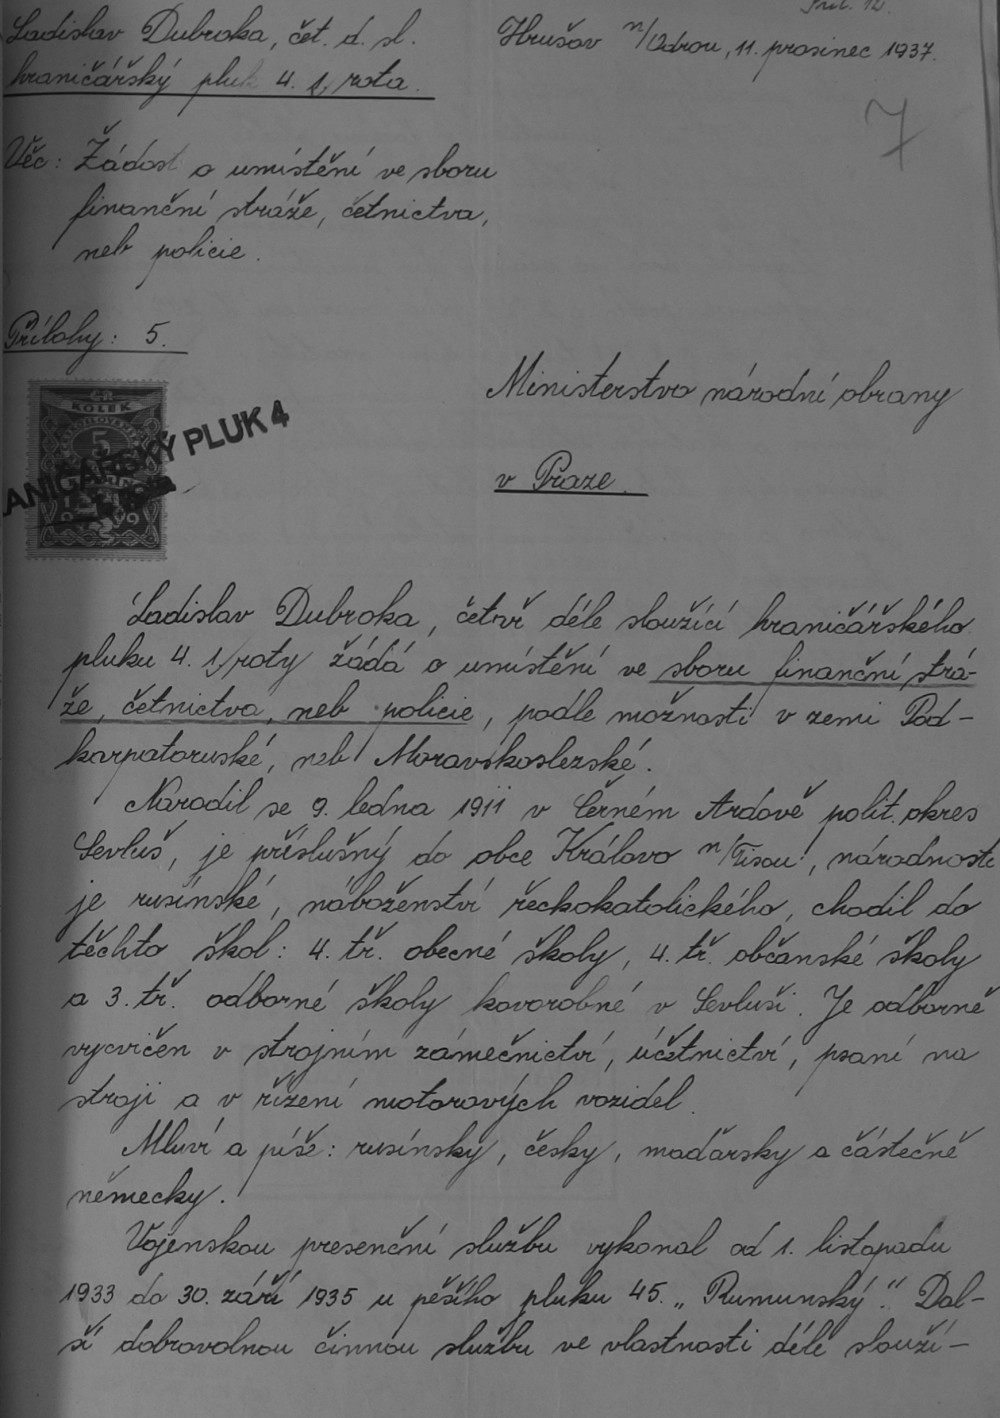 Příl. 12.
Ladislav Dubroka, čet. d. sl.
hraničářský pluk 4. 1/rota.
Hrušov n/Odrou, 11. prosinec 1937.
7
Věc: Žádost o umístění ve sboru
finanční stráže, četnictva,
neb policie.
Přílohy: 5.
KOLEK
5
ANIČÁŘSKÝ PLUK 4
Ministerstvo národní obrany
v Praze.
Ladislav Dubroka, četař déle sloužící hraničářského
pluku 4. 1/roty žádá o umístění ve sboru finanční strá-
že, četnictva, neb policie, podle možnosti v zemi Pod-
karpatoruské, neb Moravskoslezské.
Narodil se 9. ledna 1911 v Černém Ardově polit. okres
Sevluš, je příslušný do obce Královo n/Tisou, národnosti
je rusínské, náboženství řeckokatolického, chodil do
těchto škol: 4. tř. obecné školy, 4. tř. občanské školy
a 3. tř. odborné školy kovorobné v Sevluši. Je odborně
vycvičen v strojním zámečnictví, účetnictví, psaní na
stroji a v řízení motorových vozidel.
Mluví a píše: rusínsky, česky, maďarsky a částečně
německy.
Vojenskou presenční službu vykonal od 1. listopadu
1933 do 30. září 1935 u pěšího pluku 45. „Rumunský“. Dal-
ší dobrovolnou činnou službu ve vlastnosti déle slouží-